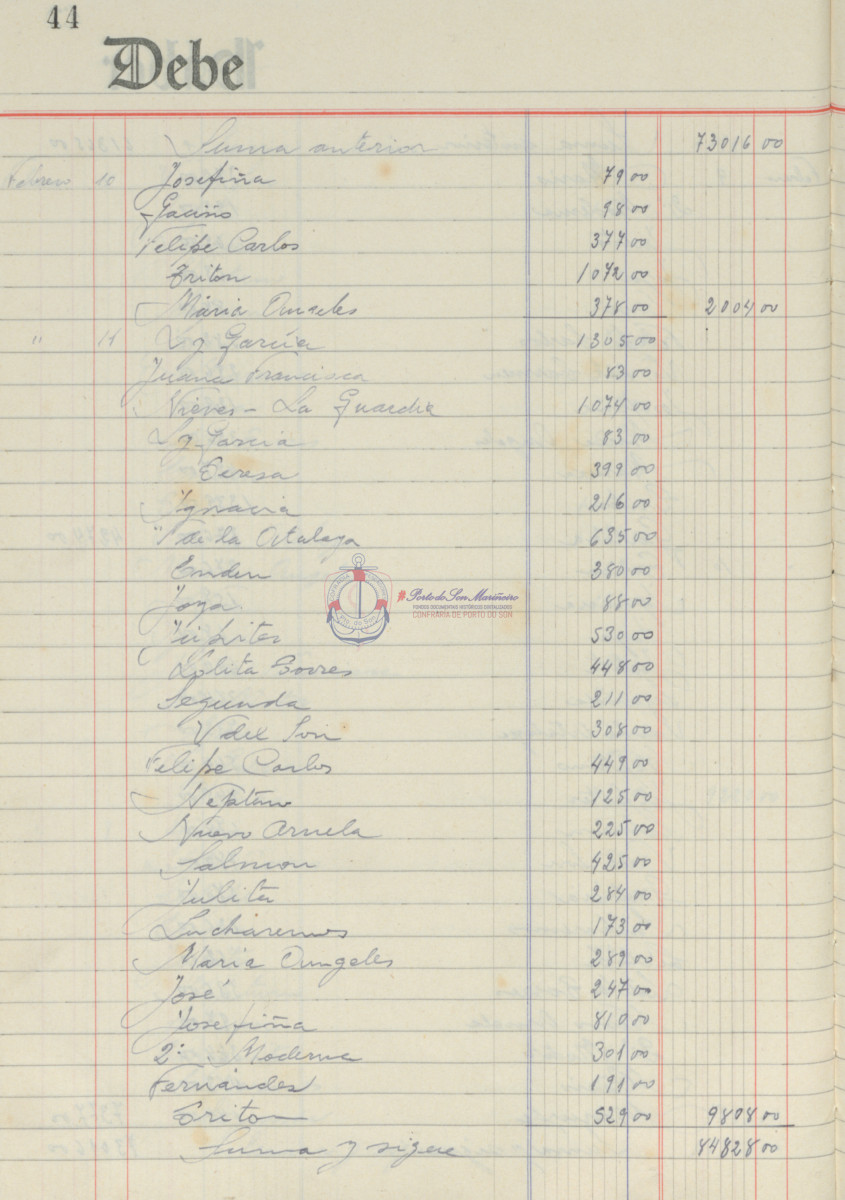 44
Debe
Suma anterior 73016 00
Febrero 10 Josefiña 79 00
Gaciño 98 00
Felipe Carlos 377 00
Triton 1072 00
Maria Angeles 378 00 2004 00
" 11 García 1305 00
Juana Francisca 83 00
Nieves - La Guardia 1074 00
Garcia 83 00
Teresa 399 00
Ignacia 216 00
de la Atalaya 635 00
380 00
Joya 88 00
530 00
Lolita Torres 448 00
Segunda 211 00
V del Son 308 00
Felipe Carlos 449 00
Neptuno 125 00
Nuevo Arnela 225 00
Salmon 425 00
Julita 284 00
Lucharemos 173 00
Maria Aungeles 289 00
José 247 00
Josefiña 810 00
2ª Moderna 301 00
Fernández 191 00
Triton 529 00 9808 00
Suma y sigue 84828 00
CONFRARÍA DE PESCADORES
Pto. do Son
#Porto do Son Mariñeiro
FONDOS DOCUMENTAIS HISTÓRICOS DIXITALIZADOS
CONFRARÍA DE PORTO DO SON